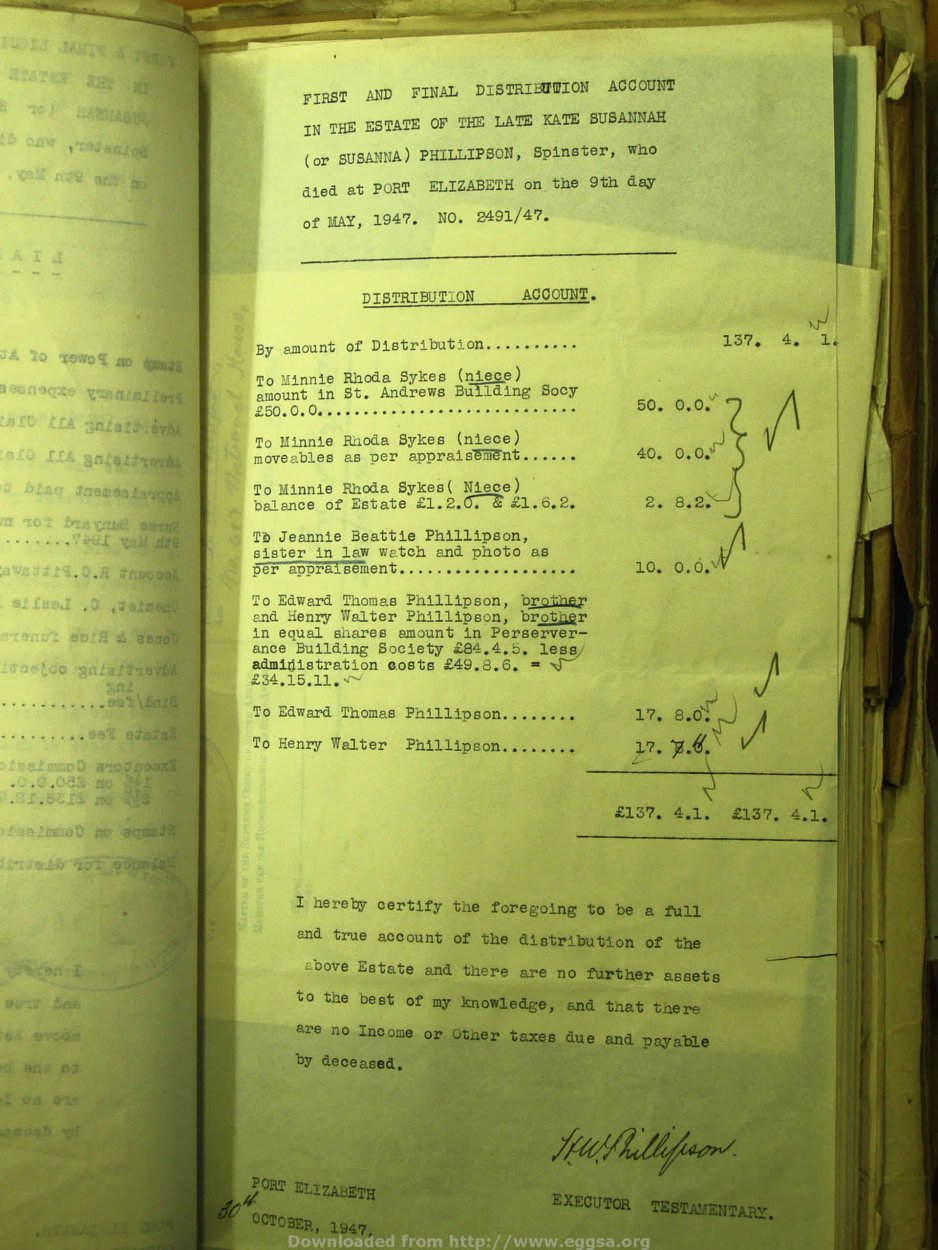 FIRST AND FINAL DISTRIBUTION ACCOUNT
IN THE ESTATE OF THE LATE KATE SUSANNAH
(or SUSANNA) PHILLIPSON, Spinster, who
died at PORT ELIZABETH on the 9th day
of MAY, 1947. NO. 2491/47.
DISTRIBUTION ACCOUNT.
By amount of Distribution.......... 137. 4. 1.
To Minnie Rhoda Sykes (niece)
amount in St. Andrews Building Socy
£50.0.0............................ 50. 0.0.
To Minnie Rhoda Sykes (niece)
moveables as per appraisement...... 40. 0.0.
To Minnie Rhoda Sykes( Niece)
balance of Estate £1.2.0. & £1.6.2. 2. 8.2.
To Jeannie Beattie Phillipson,
sister in law watch and photo as
per appraisement................... 10. 0.0.
To Edward Thomas Phillipson, brother
and Henry Walter Phillipson, brother
in equal shares amount in Perserver-
ance Building Society £84.4.5. less
administration costs £49.8.6. =
£34.15.11.
To Edward Thomas Phillipson........ 17. 8.0.
To Henry Walter Phillipson........ 17.
£137. 4.1. £137. 4.1.
I hereby certify the foregoing to be a full
and true account of the distribution of the
above Estate and there are no further assets
to the best of my knowledge, and that there
are no Income or Other taxes due and payable
by deceased.
H.W. Phillipson.
EXECUTOR TESTAMENTARY.
PORT ELIZABETH
30th OCTOBER, 1947.
Downloaded from http://www.eggsa.org